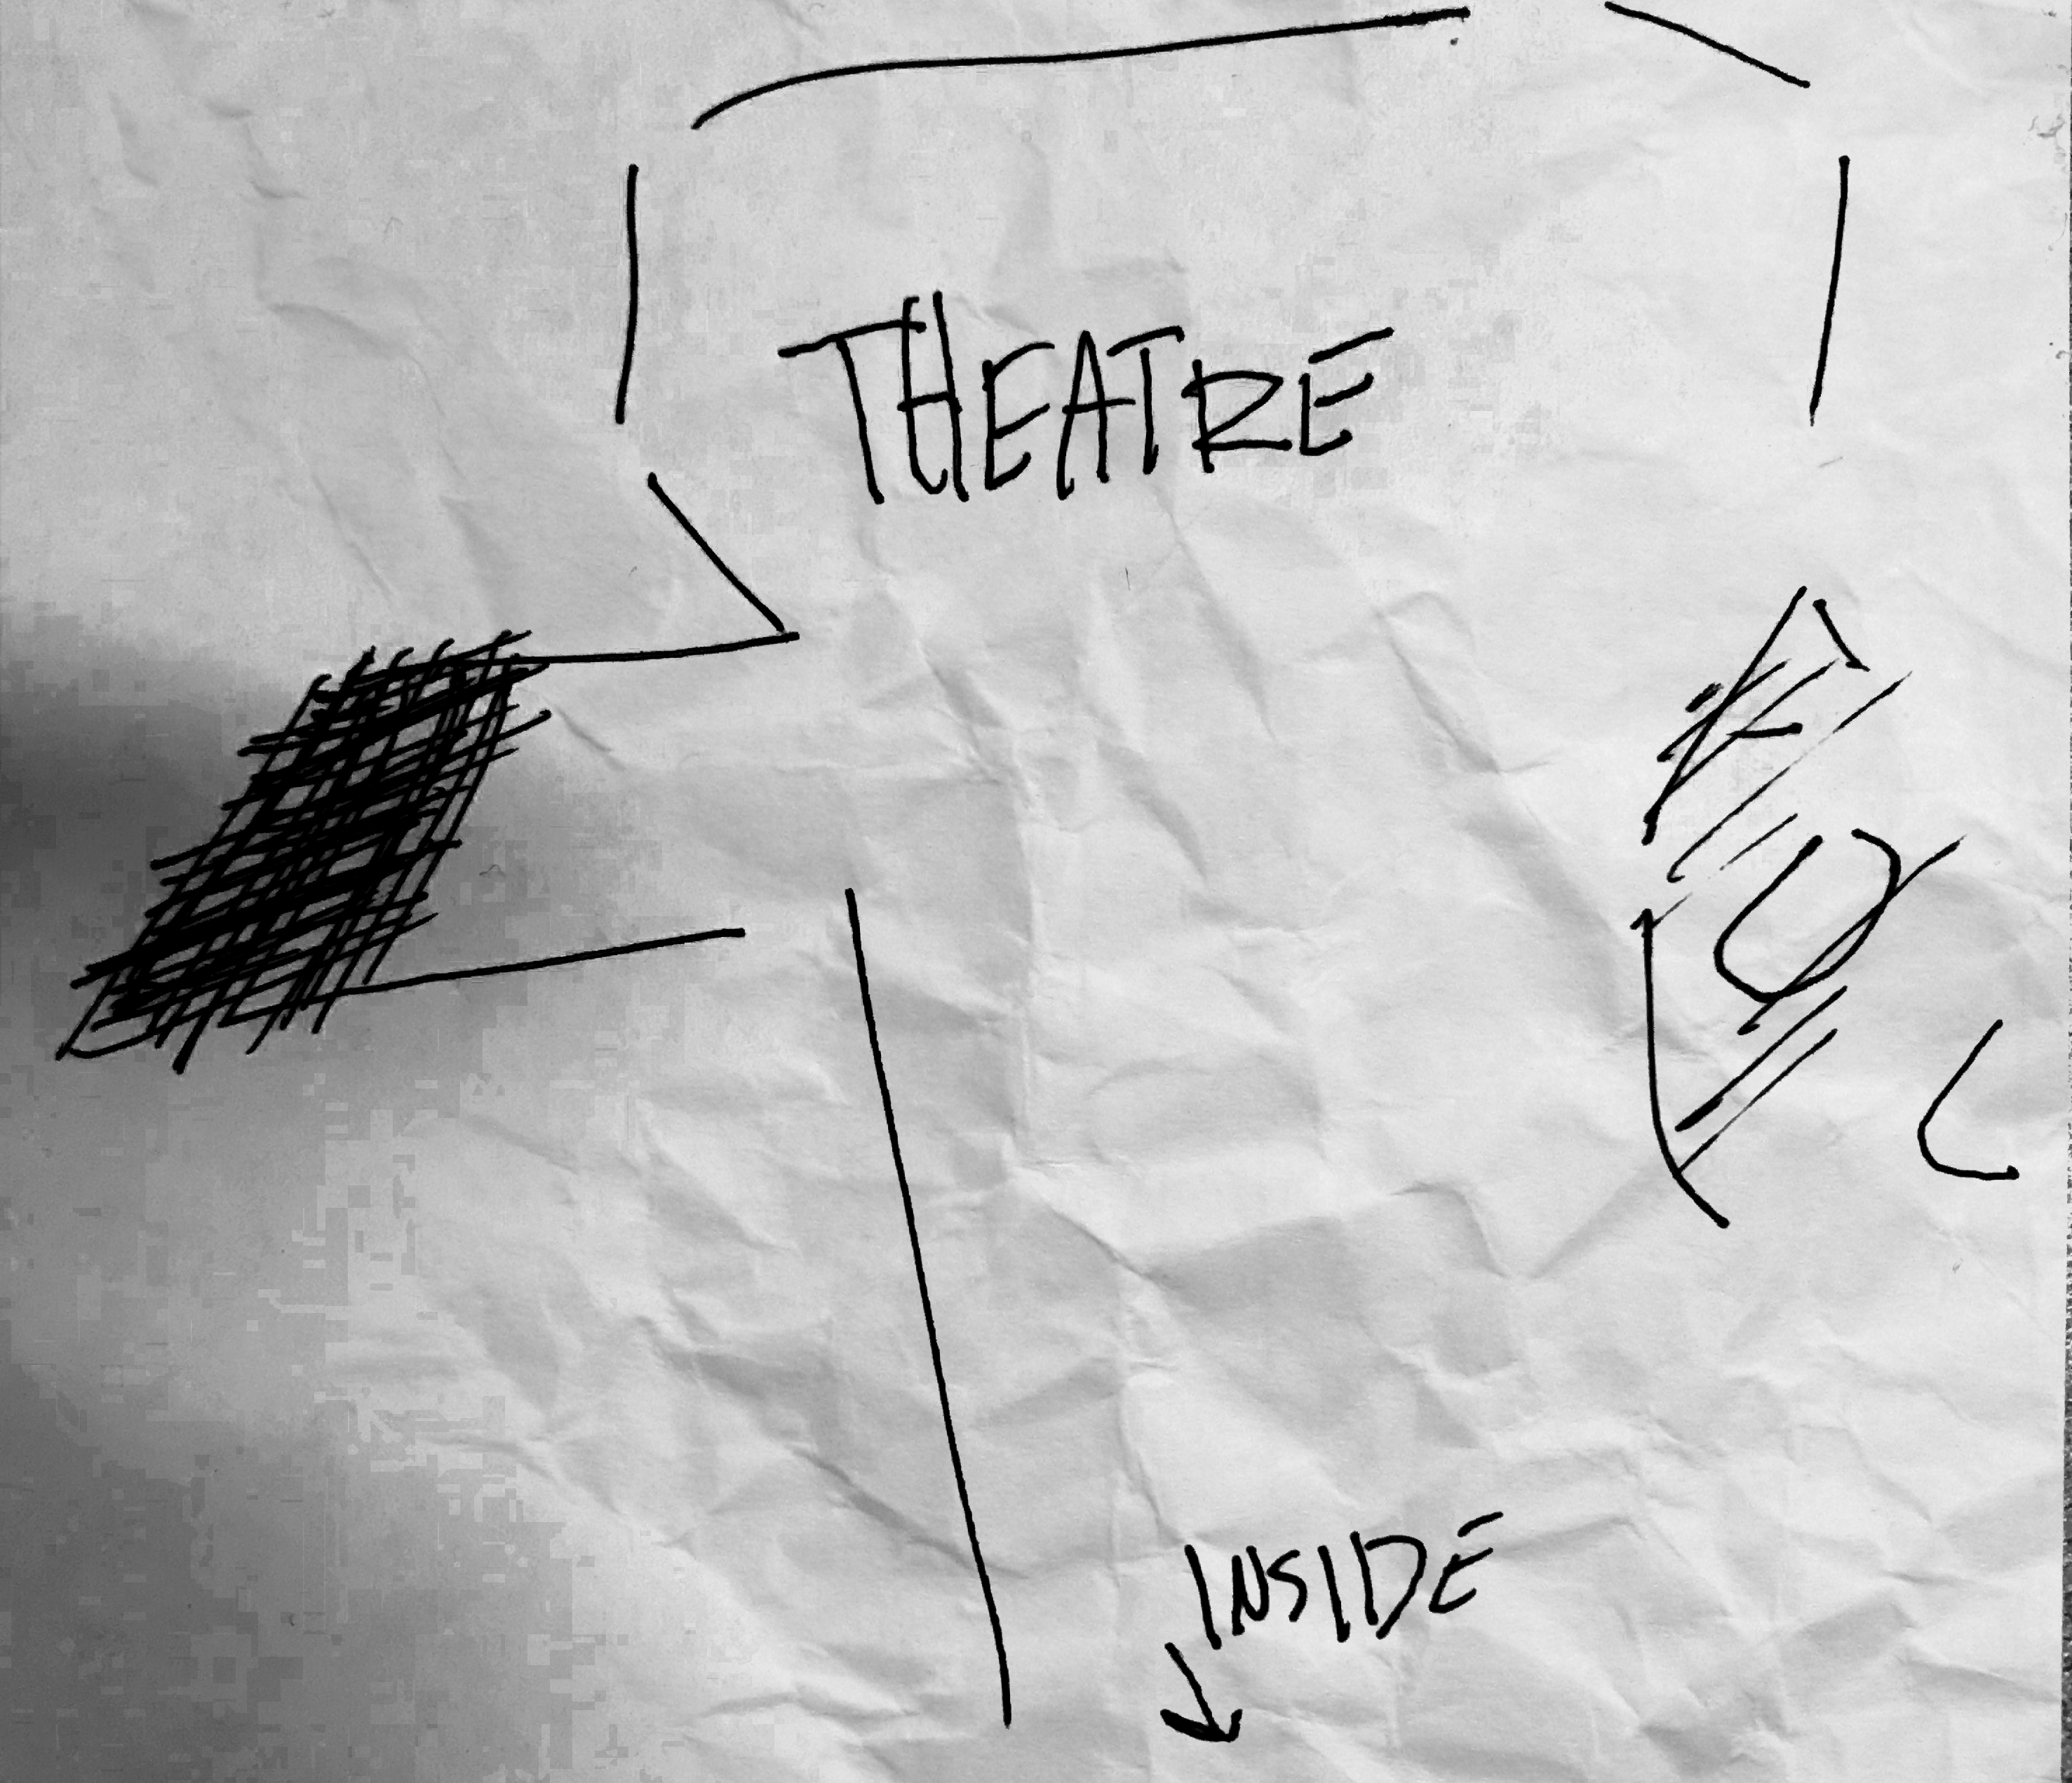 THEATRE
INSIDE